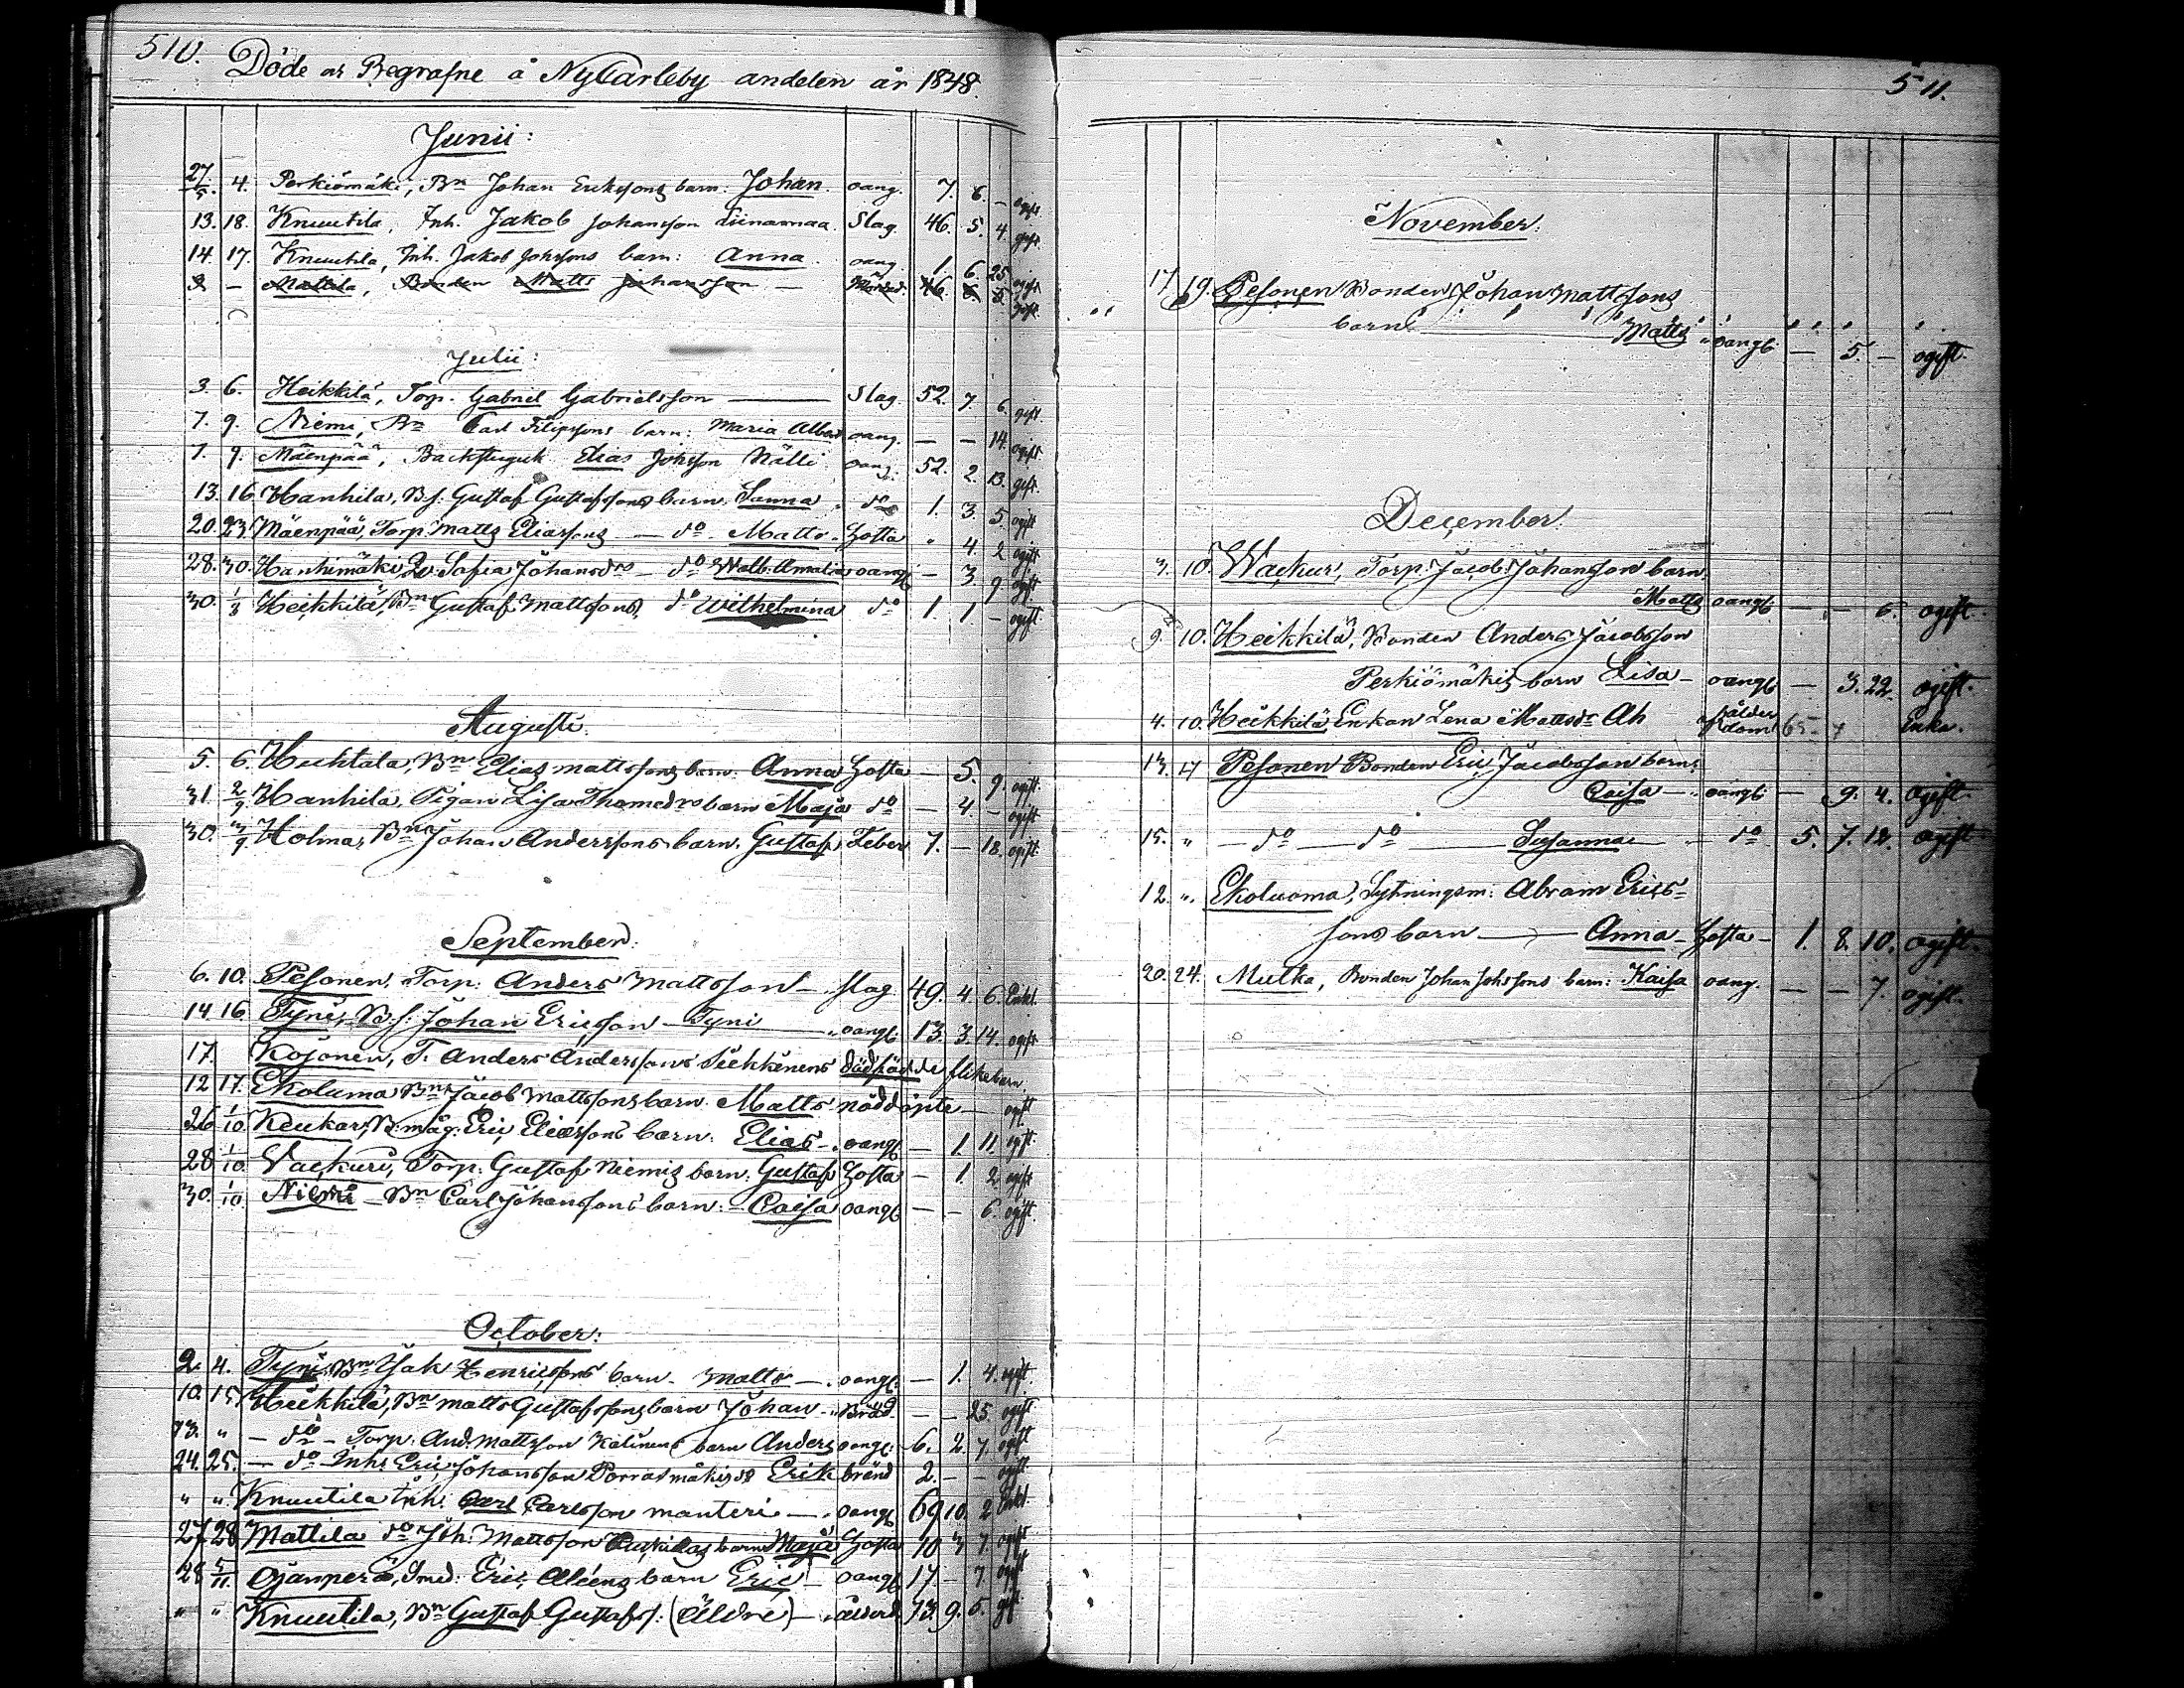 510. Döde oc Begrafne å NyCarleby andelen år 1848.
Junii:
27/5. 4. Perkiömäki, Bn Johan Erikssons barn: Johan. oang. 7. 6. – ogift
13. 18. Knuutila, Inh. Jakob Johansson Liinamaa. Slag. 46. 5. 4. gift.
14. 17. Knuutila, Inh. Jakob Johssons barn: Anna. oang. 1. 6. 25. ogift
– Mattila, Bonden Matts Johansson – 46. gift.
Julii:
3. 6. Heikkilä, Torp. Gabriel Gabrielsson — Slag. 52. 7. 6. gift.
7. 9. Niemi, Bn Carl Filipssons barn: Maria oang. – – 14. ogift.
7. 9. Mäenpää, Backstuguk. Elias Johsson Nälli oang. 52. 2. 13. gift.
13. 16. Hanhila, B.s. Gustaf Gustafssons barn. Sanna. do 1. 3. 5. ogift
20. 23. Mäenpää, Torp. Matts Eliassons – do – Matts. Hosta " 4. 2 ogift
28. 30. Hanhimäki Sofia Johansdrs – do Amalia oangf – 3 9 ogift
30. 1/8 Heikkilä, Bn Gustaf Mattssons do Wilhelmina do 1. 1 – ogift.
Augusti.
5. 6. Huhtala, Bn Elias Mattssons barn. Anna Hosta – 5. 9. ogift.
31. 2/9 Hanhila, Pigan Lisa Thomedrs barn Maja do – 4. – ogift
30. 3/9 Holma, Bn Johan Anderssons barn. Gustaf Feber 7. – 18. ogift.
September.
6. 10. Pesonen, Torp. Anders Mattsson – slag 49. 4. 6. Enkl.
14 16 Tyni, B.s. Johan Ericsson – Tyni " oangf. 13. 3. 14. ogift
17. Kojonen, T. Anders Anderssons dödfödde flikebarn
12 17. Ekoluma Bn Jacob Mattssons barn. Matts nöddöpte – ogift
26 1/10 Keukar, B. måg. Eric Eliassons barn. Elias – oangf – 1. 11. ogift.
28 1/10. Wackuri, Torp. Gustaf Niemis barn. Gustaf Hosta – 1. 2. ogift
30. 1/10 Niemi – Bn Carl Johanssons barn. – Caisa oangf – – 6. ogift.
October:
2. 4. Tyni Bn Isak Henricssons barn – Matts – oangf. – 1. 4. ogift.
10. 15 Heikkilä, Bn Matts Gustafssons barn Johan – – – 25. ogift
13. " – do – Torp. And. Mattsson Kalinens barn Anders oangf. 6. 2. 7. ogift
24. 25. – do – Inhs Eric Johansson Porrasmäkis do Erik bränd 2. – – ogift
" " Knuutila Inh. Carl Carlsson Manteri – oangf 69 10. 2 Enkl.
27 28 Mattila do Joh. Mattsson barn Maja Hosta 10 3 7. ogift
28 5/11. Ojanperä, Smed: Eric Aléens barn Eric – oangf 17. – 7. ogift
" " Knuutila, Bn Gustaf Gustafss. (Äldre) – ålderd. 73. 9. 5. gift.
511.
November.
17 19. Pesonen Bonden Johan Mattssons
barn Matts oangf – 5. – ogift.
December.
3. 10. Wackur, Torp. Jacob Johansson barn
Matts oangf – – 6. ogift.
9. 10. Heikkilä, Bonden Anders Jacobsson
Perkiömäkis barn Lisa – oangf – 3. 22 ogift.
4. 10. Heikkilä Enkan Lena Mattsdr Ah af ålderdom 65 – Enka.
13. 17 Pesonen Bonden Eric Jacobsson barn
Caisa – oangf. – 9. 4. ogift.
15. " – do – do – Susanna – do 5. 7. 12. ogift
12. ". Ekoluoma, Sytningsm: Abram Erics-
sons barn — Anna – Hosta – 1. 8. 10. ogift.
20. 24. Mutka, Bonden Johan Johssons barn: Kaisa oang. – – 7. ogift.